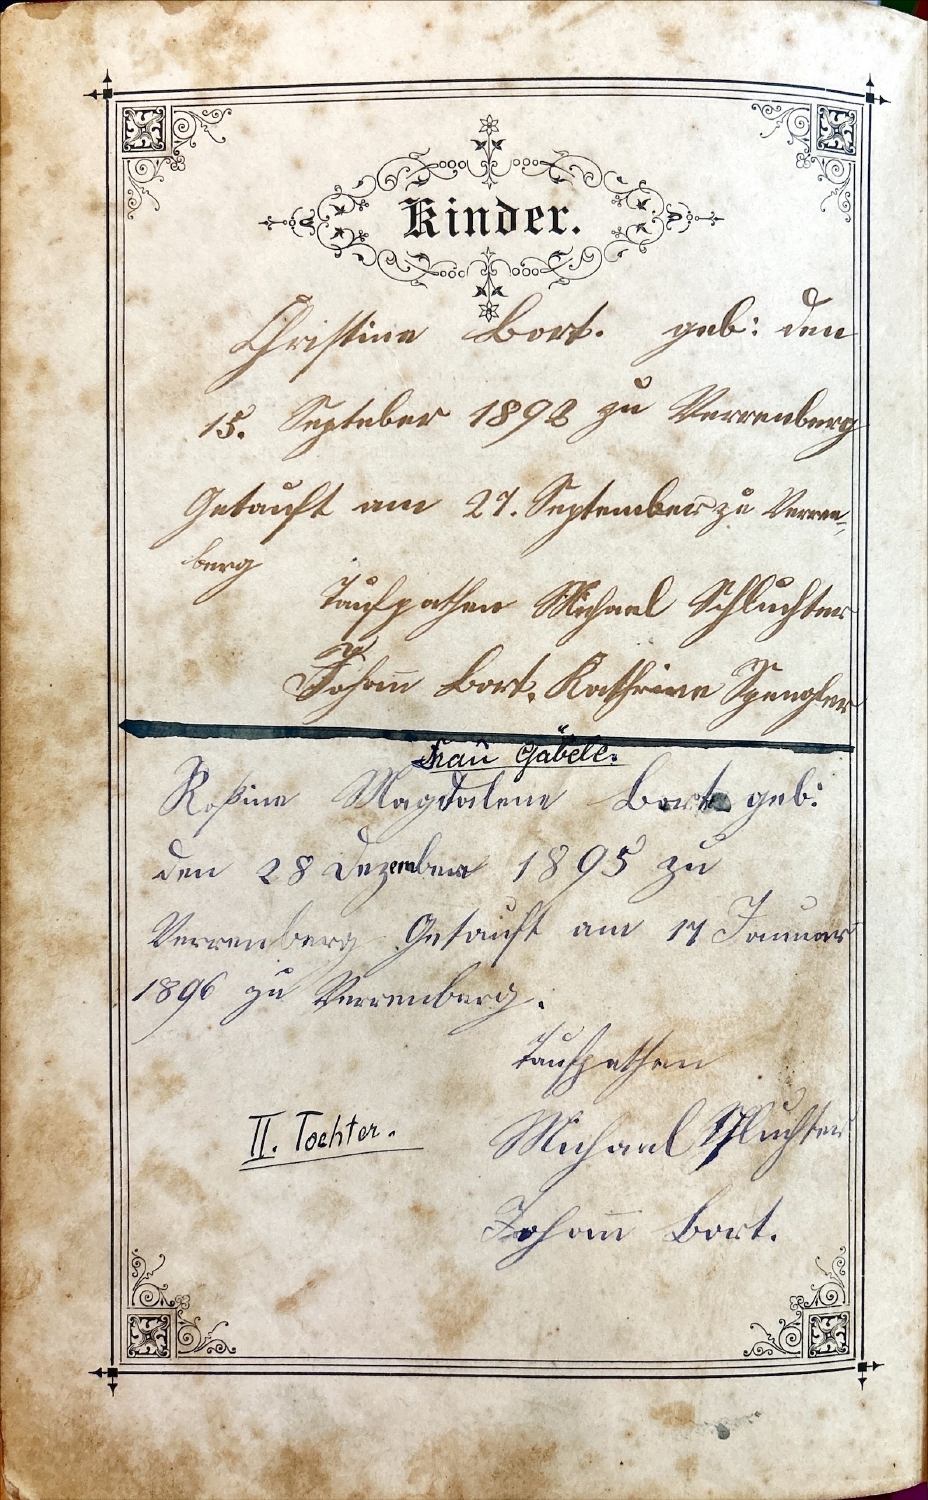 Kinder.
Christine Bort. geb: den
15. Septeber 1893 zu Verrenberg
Getauft am 27. September zu Verren-
berg
Taufpathen Michael Schluchter
Johann Bort. Kathrine Spengler
Frau Gäbele.
Roßine Magdalene Bort geb:
den 28 Dezember 1895 zu
Verrenberg Getauft am 17 Januar
1896 zu Verrenberg.
Taufpathen
II. Tochter.
Michael Schluchter
Johann Bort.